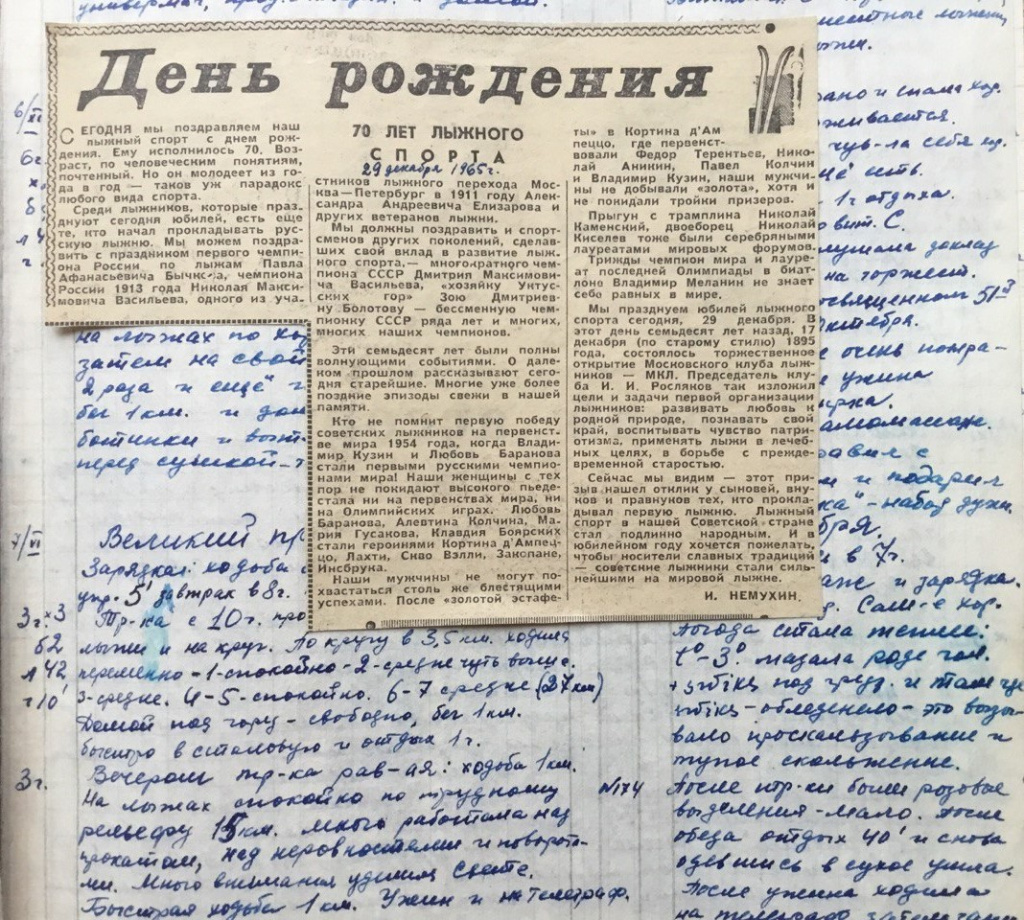 День рождения
СЕГОДНЯ мы поздравляем наш
лыжный спорт с днем рож-
дения. Ему исполнилось 70. Воз-
раст, по человеческим понятиям,
почтенный. Но он молодеет из го-
да в год — таков уж парадокс
любого вида спорта.
Среди лыжников, которые праз-
днуют сегодня юбилей, есть еще
те, кто начал прокладывать рус-
скую лыжню. Мы можем поздра-
вить с праздником первого чемпи-
она России по лыжам Павла
Афанасьевича Бычкова, чемпиона
России 1913 года Николая Макси-
мовича Васильева, одного из уча-
70 ЛЕТ ЛЫЖНОГО
СПОРТА
29 декабря 1965г.
стников лыжного перехода Мос-
ква—Петербург в 1911 году Алек-
сандра Андреевича Елизарова и
других ветеранов лыжни.
Мы должны поздравить и спорт-
сменов других поколений, сделав-
ших свой вклад в развитие лыж-
ного спорта,— многократного чем-
пиона СССР Дмитрия Максимови-
ча Васильева, «хозяйку Унтус-
ских гор» Зою Дмитриев-
ну Болотову — бессменную чем-
пионку СССР ряда лет и многих,
многих наших чемпионов.
Эти семьдесят лет были полны
волнующими событиями. О дале-
ком прошлом рассказывают сего-
дня старейшие. Многие уже более
поздние эпизоды свежи в нашей
памяти.
Кто не помнит первую победу
советских лыжников на первенст-
ве мира 1954 года, когда Влади-
мир Кузин и Любовь Баранова
стали первыми русскими чемпио-
нами мира! Наши женщины с тех
пор не покидают высокого пьеде-
стала ни на первенствах мира, ни
на Олимпийских играх. Любовь
Баранова, Алевтина Колчина, Ма-
рия Гусакова, Клавдия Боярских
стали героинями Кортина д'Ампец-
цо, Лахти, Скво Вэлли, Закопане,
Инсбрука.
Наши мужчины не могут по-
хвастаться столь же блестящими
успехами. После «золотой эстафе-
ты» в Кортина д'Ам
пеццо, где первенст-
вовали Федор Терентьев, Нико-
лай Аникин, Павел Колчин
и Владимир Кузин, наши мужчи-
ны не добывали «золота», хотя и
не покидали тройки призеров.
Прыгун с трамплина Николай
Каменский, двоеборец Николай
Киселев тоже были серебряными
лауреатами мировых форумов.
Трижды чемпион мира и лауре-
ат последней Олимпиады в биат-
лоне Владимир Меланин не знает
себе равных в мире.
Мы празднуем юбилей лыжного
спорта сегодня, 29 декабря. В
этот день семьдесят лет назад, 17
декабря (по старому стилю) 1895
года, состоялось торжественное
открытие Московского клуба лыж-
ников — МКЛ. Председатель клу-
ба И. И. Росляков так изложил
цели и задачи первой организации
лыжников: развивать любовь к
родной природе, познавать свой
край, воспитывать чувство патри-
отизма, применять лыжи в лечеб-
ных целях, в борьбе с прежде-
временной старостью.
Сейчас мы видим — этот при-
зыв нашел отклик у сыновей, вну-
ков и правнуков тех, кто прокла-
дывал первую лыжню. Лыжный
спорт в нашей Советской стране
стал подлинно народным. И в
юбилейном году хочется пожелать,
чтобы носители славных традиций
— советские лыжники стали силь-
нейшими на мировой лыжне.
И. НЕМУХИН.
на лыжах по
затем на свой
2 раза и ещё
бег 1 км. и
ботинки и
перед сушкой
7/XI Великий
Зарядка: ходьба
упр. 5' завтрак в 8 г.
Тр-ка с 10 г.
лыжи и на круг. По кругу в 3,5 км. ходила
переменно-1-спокойно-2-средне чуть выше.
3-средне. 4-5-спокойно. 6-7 средне (27 км)
Домой под гору-свободно, бег 1 км.
быстро в столовую и отдых 1 г.
3 г. Вечером тр-ка рав-ая: ходьба 1 км.
На лыжах спокойно по трудному
рельефу 15 км. много работала над
прокатом, над неровностями и поворота-
ми. Много внимания уделила
Быстрая ходьба 1 км. Ужин и на телеграф.
отдыха
слушала доклад
на торжест.
Октября.
очень понра-
ужина
самомассаж.
и подарил
в 7 г.
и зарядка.
Погода стала теплее:
t°-3°. мазала
под груз. и
обледенело-это вызы-
вало проскальзывание и
тупое скольжение.
№174 После тр-ки были розовые
выделения-мало. После
обеда отдых 40' и снова
одевшись в сухое ушла.
После ужина ходила
на телеграф